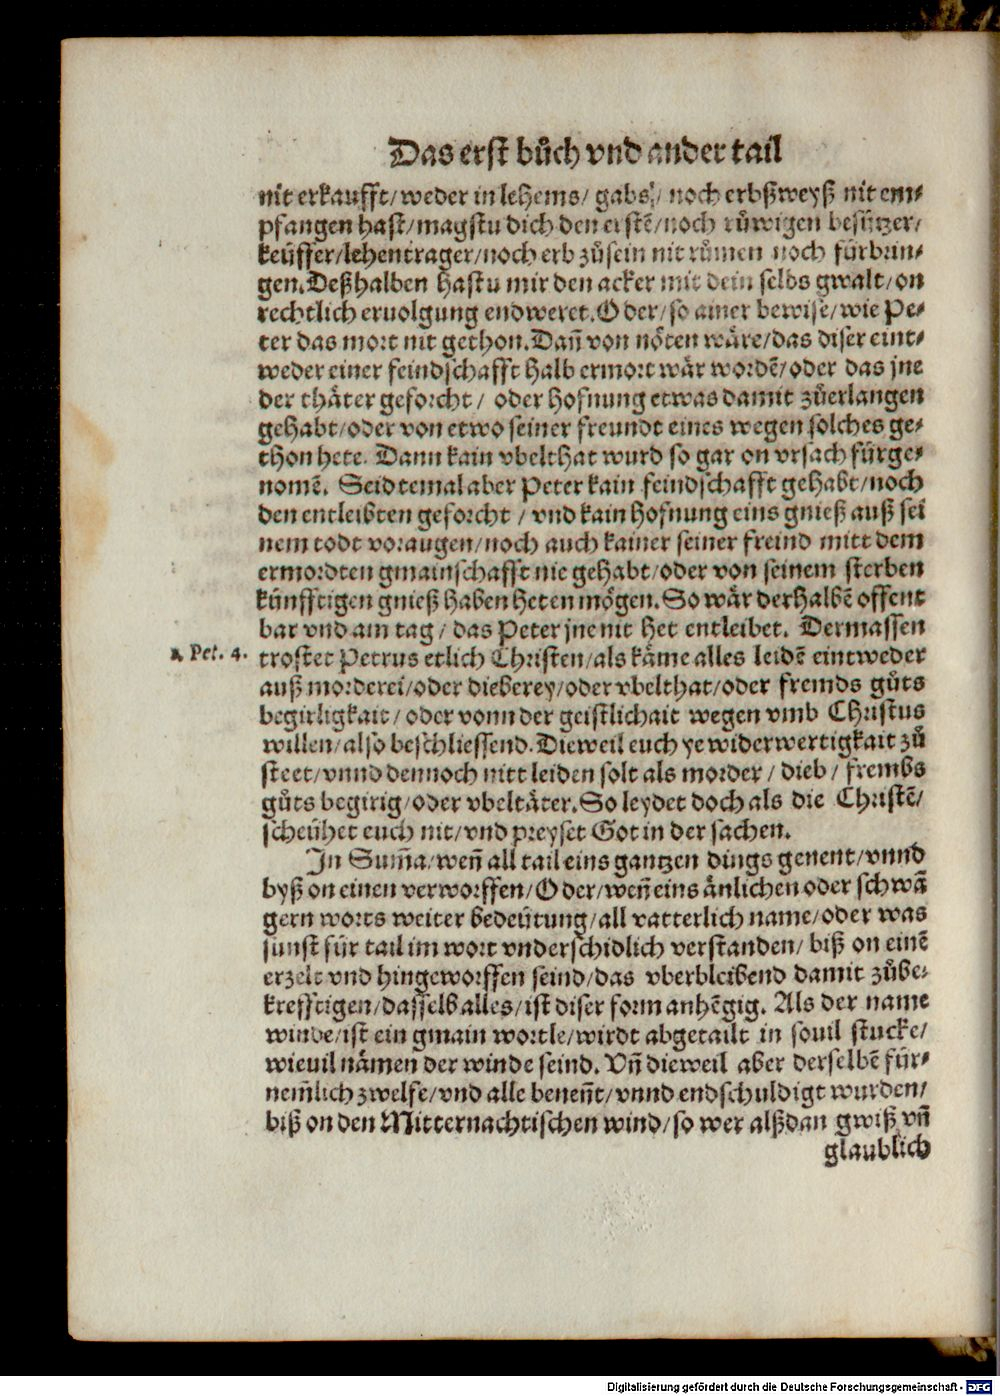 Das erst bůch vnd ander tail
nit erkaufft/ weder in lehems/ gabs/ noch erbßweyß nit em⸗
pfangen hast/ magstu dich den erstē/ noch růwigen besützer/
keüffer/ lehentrager/ noch erb zůsein nit růmen noch fürbrin⸗
gen. Deßhalben hastu mir den acker mit dein selbs gwalt/ on
rechtlich eruolgung endweret. Oder/ so ainer bewise/ wie Pe⸗
ter das mort nit gethon. Dañ von nöten wäre/ das diser eint⸗
weder einer feindschafft halb ermort wär wordē/ oder das jne
der thäter geforcht/ oder hofnung etwas damit zůerlangen
gehabt/ oder von etwo seiner freundt eines wegen solches ge⸗
thon hete. Dann kain vbelthat wurd so gar on vrsach fürge⸗
nomē. Seid temal aber Peter kain feindschafft gehabt/ noch
den entleibten geforcht/ vnd kain hofnung eins gnieß auß sei
nem todt voraugen/ noch auch kainer seiner freind mitt dem
ermordten gmainschafft nie gehabt/ oder von seinem sterben
künfftigen gnieß haben heten mögen. So wär derhalbē offent
bar vnd am tag/ das Peter jne nit het entleibet. Dermassen
1. Pet. 4.
trostet Petrus etlich Christen/ als käme alles leidē eintweder
auß morderei/ oder dieberey/ oder vbelthat/ oder fremds gůts
begirligkait/ oder vonn der geistlichait wegen vmb Christus
willen/ also beschliessend. Dieweil euch ye widerwertigkait zů
steet/ vnnd dennoch nitt leiden solt als morder/ dieb/ frembs
gůts begirig/ oder vbeltäter. So leydet doch als die Christē/
scheühet euch nit/ vnd preyset Got in der sachen.
In Sum̃a/ weñ all tail eins gantzen dings genent/ vnnd
byß on einen verworffen/ Oder/ weñ eins änlichen oder schwā
gern worts weiter bedeütung/ all vatterlich name/ oder was
sunst für tail im wort vnderschidlich verstanden/ biß on einē
erzelt vnd hingeworffen seind/ das vberbleibend damit zůbe⸗
krefftigen/ dasselb alles/ ist diser form anhēgig. Als der name
winde/ ist ein gmain wortle/ wirdt abgetailt in souil stucke/
wieuil nämen der winde seind. Vñ dieweil aber derselbē für⸗
nem̃lich zwelfe/ vnd alle beneñt/ vnnd endschuldigt wurden/
biß on den Mitternachtischen wind/ so wer alßdan gwiß vñ
glaublich
Digitalisierung gefördert durch die Deutsche Forschungsgemeinschaft - DFG